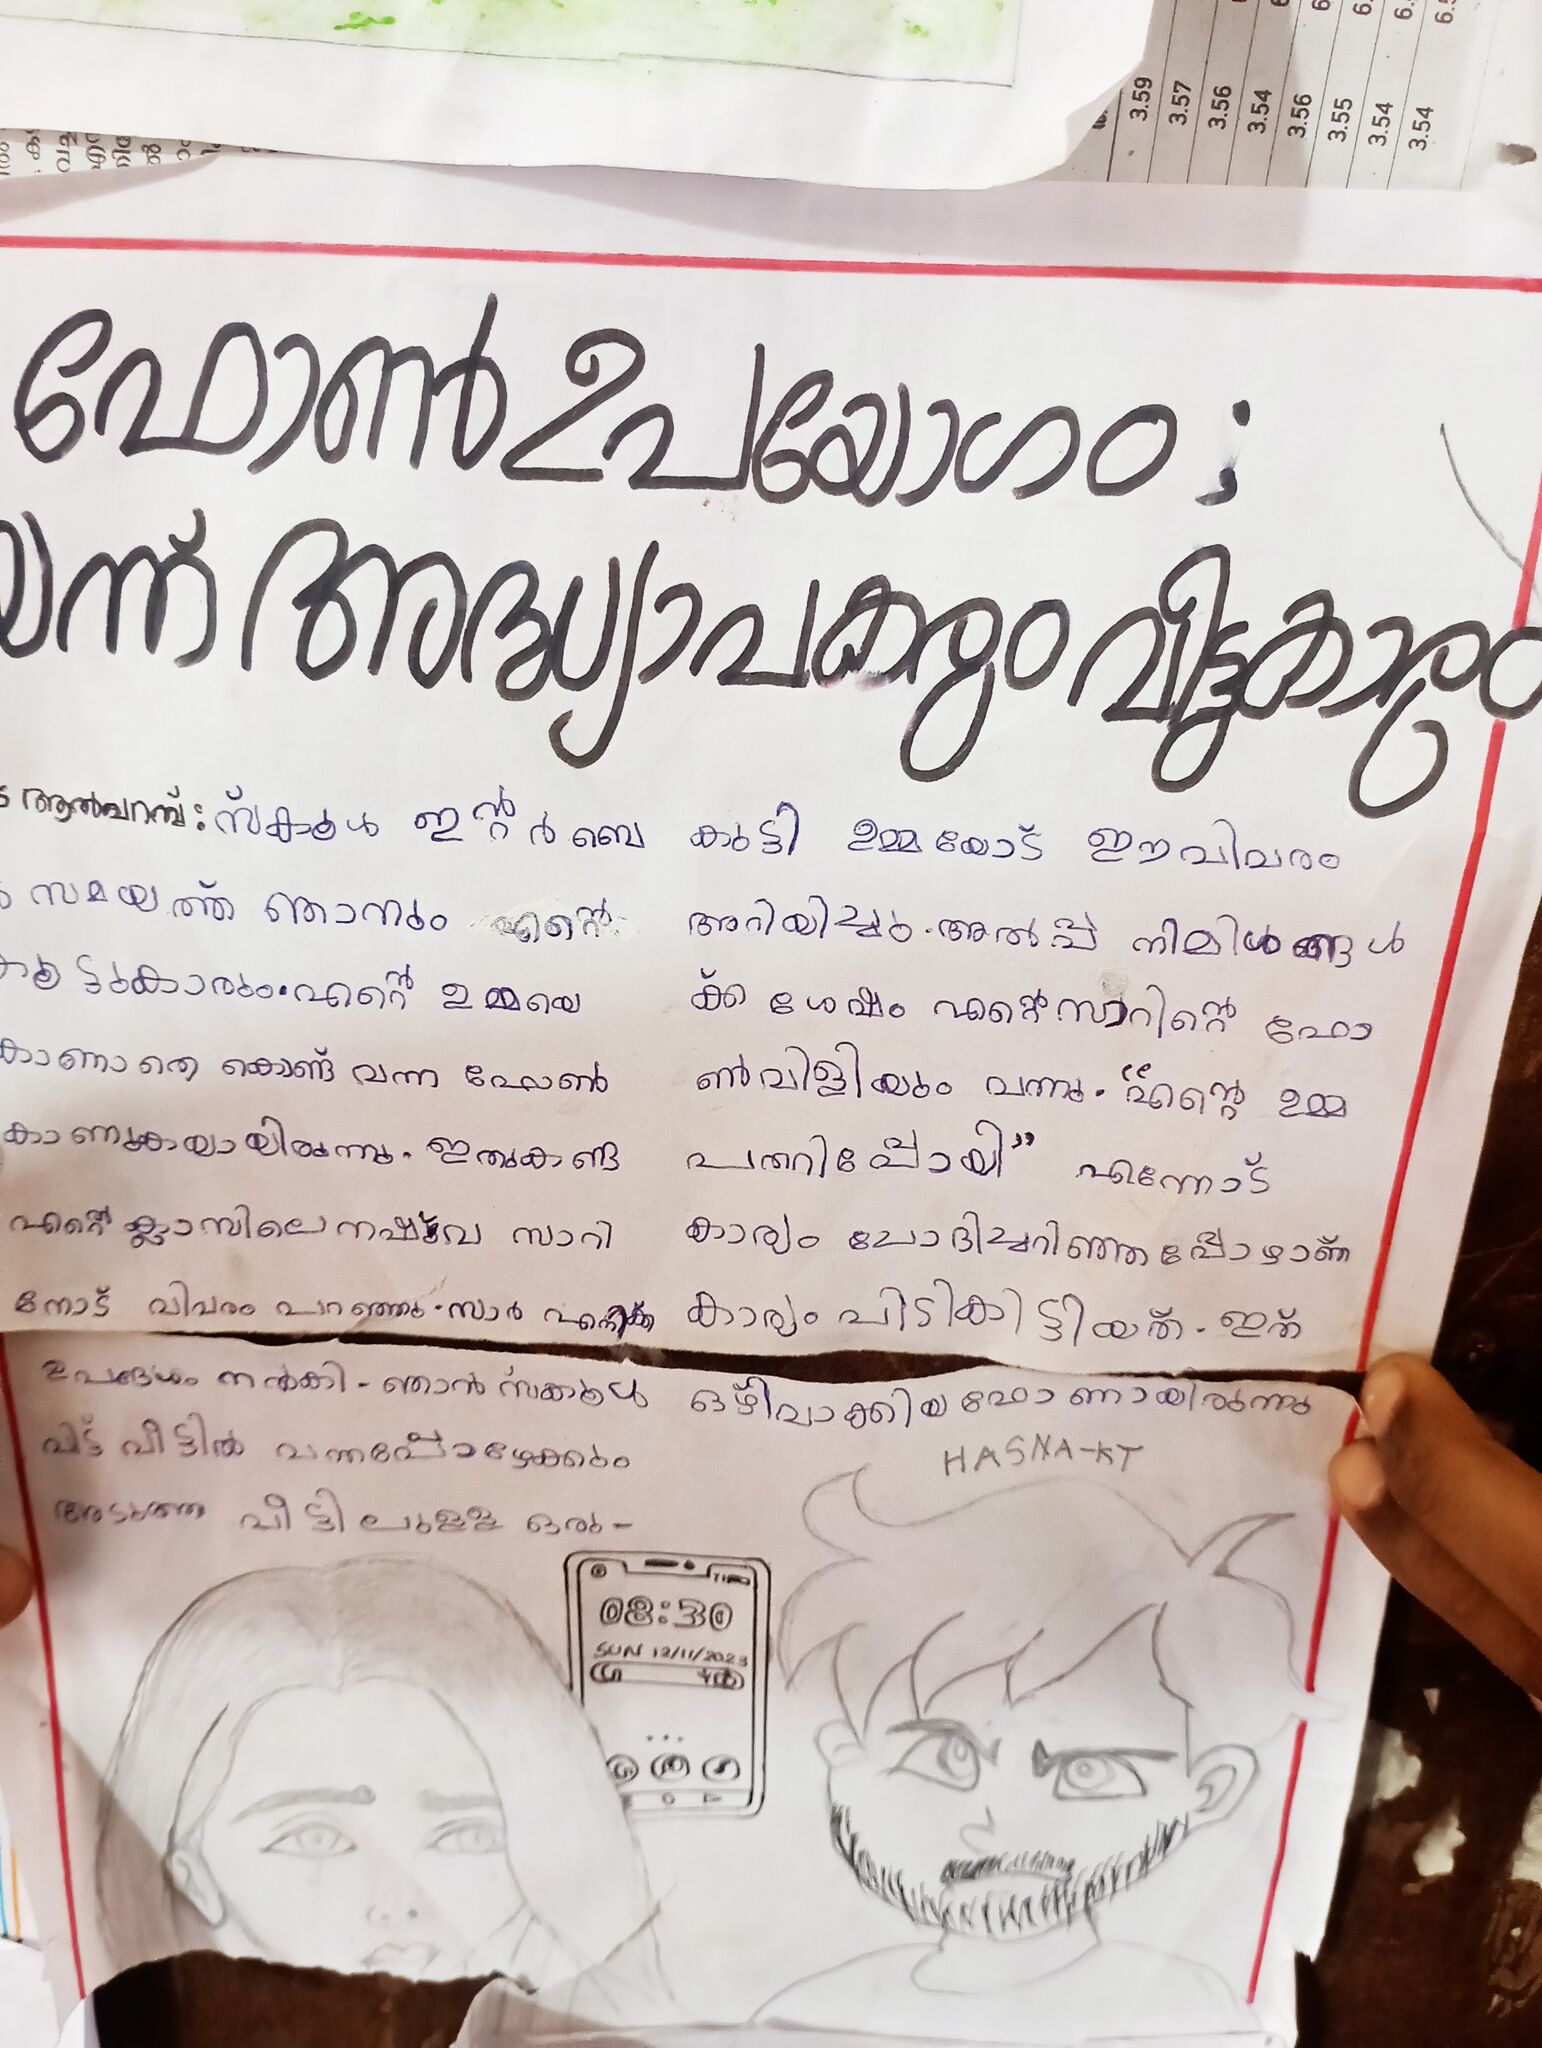 3.59
3.57
3.56
3.54
3.56
3.55
3.54
3.54
ഫോൺ ഉപയോഗം ;
അദ്ധ്യാപകരും വീട്ടുകാരും
ആൽപറമ്പ് : സ്കൂൾ ഇന്റർബെ
സമയത്ത് ഞാനും എന്റെ
കൂട്ടുകാരും. എന്റെ ഉമ്മയെ
കാണാതെ കൊണ്ട് വന്ന ഫോൺ
കാണുകയായിരുന്നു. ഇതുകണ്ട
എന്റെ ക്ലാസിലെ നഷ്‌വ സാറി
നോട് വിവരം പറഞ്ഞു. സാർ എനിക്ക്
ഉപദേശം നൽകി. ഞാൻ സ്കൂൾ
വിട്ട് വീട്ടിൽ വന്നപ്പോഴേക്കും
അടുത്ത വീട്ടിലുള്ള ഒരു-
കുട്ടി ഉമ്മയോട് ഈ വിവരം
അറിയിച്ചു. അൽപ്പ നിമിഷങ്ങൾ
ക്ക് ശേഷം എന്റെ സാറിന്റെ ഫോ
ൺവിളിയും വന്നു. "എന്റെ ഉമ്മ
പതറിപ്പോയി" എന്നോട്
കാര്യം ചോദിച്ചറിഞ്ഞപ്പോഴാണ്
കാര്യം പിടികിട്ടിയത്. ഇത്
ഒഴിവാക്കിയ ഫോണായിരുന്നു
HASNA-KT
08:30
SUN 12/11/2023